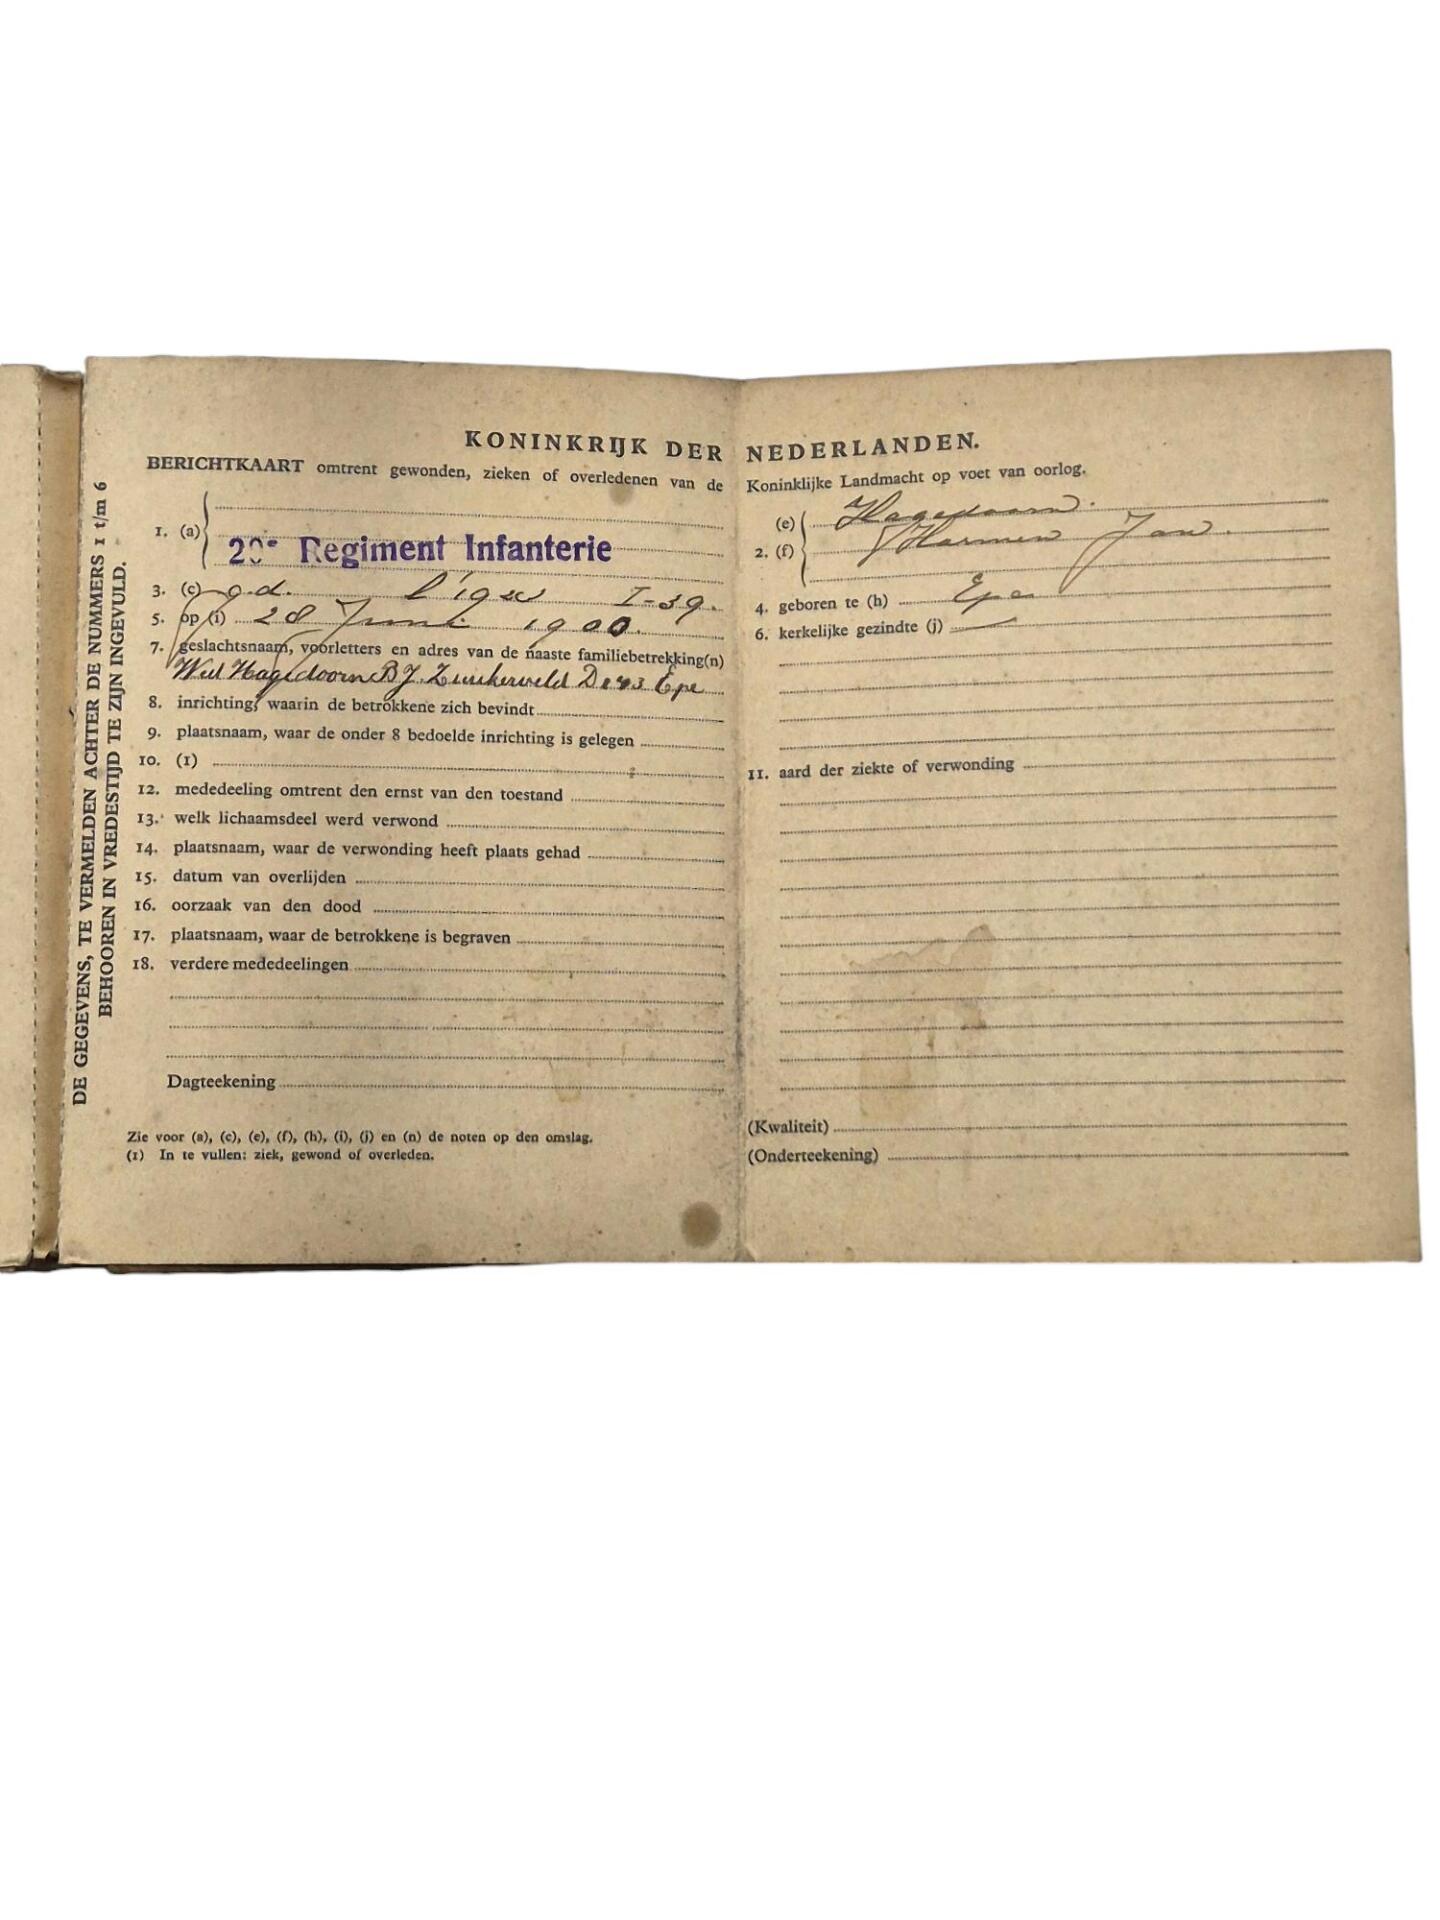 DE GEGEVENS, TE VERMELDEN ACHTER DE NUMMERS 1 t/m 6
BEHOOREN IN VREDESTIJD TE ZIJN INGEVULD.
KONINKRIJK DER NEDERLANDEN.
BERICHTKAART omtrent gewonden, zieken of overledenen van de Koninklijke Landmacht op voet van oorlog.
1. (a)
20e Regiment Infanterie
3. (c) g.d. l' I-39.
5. op (i) 28 Juni 1900.
7. geslachtsnaam, voorletters en adres van de naaste familiebetrekking(n)
Wed Hagedoorn B J. Zuukerveld D Epe
8. inrichting, waarin de betrokkene zich bevindt
9. plaatsnaam, waar de onder 8 bedoelde inrichting is gelegen
10. (1)
12. mededeeling omtrent den ernst van den toestand
13. welk lichaamsdeel werd verwond
14. plaatsnaam, waar de verwonding heeft plaats gehad
15. datum van overlijden
16. oorzaak van den dood
17. plaatsnaam, waar de betrokkene is begraven
18. verdere mededeelingen
Dagteekening
Zie voor (a), (c), (e), (f), (h), (i), (j) en (n) de noten op den omslag.
(1) In te vullen: ziek, gewond of overleden.
(e) Hagedoorn.
2. (f) Harmen Jan.
4. geboren te (h) Epe
6. kerkelijke gezindte (j) —
11. aard der ziekte of verwonding
(Kwaliteit)
(Onderteekening)